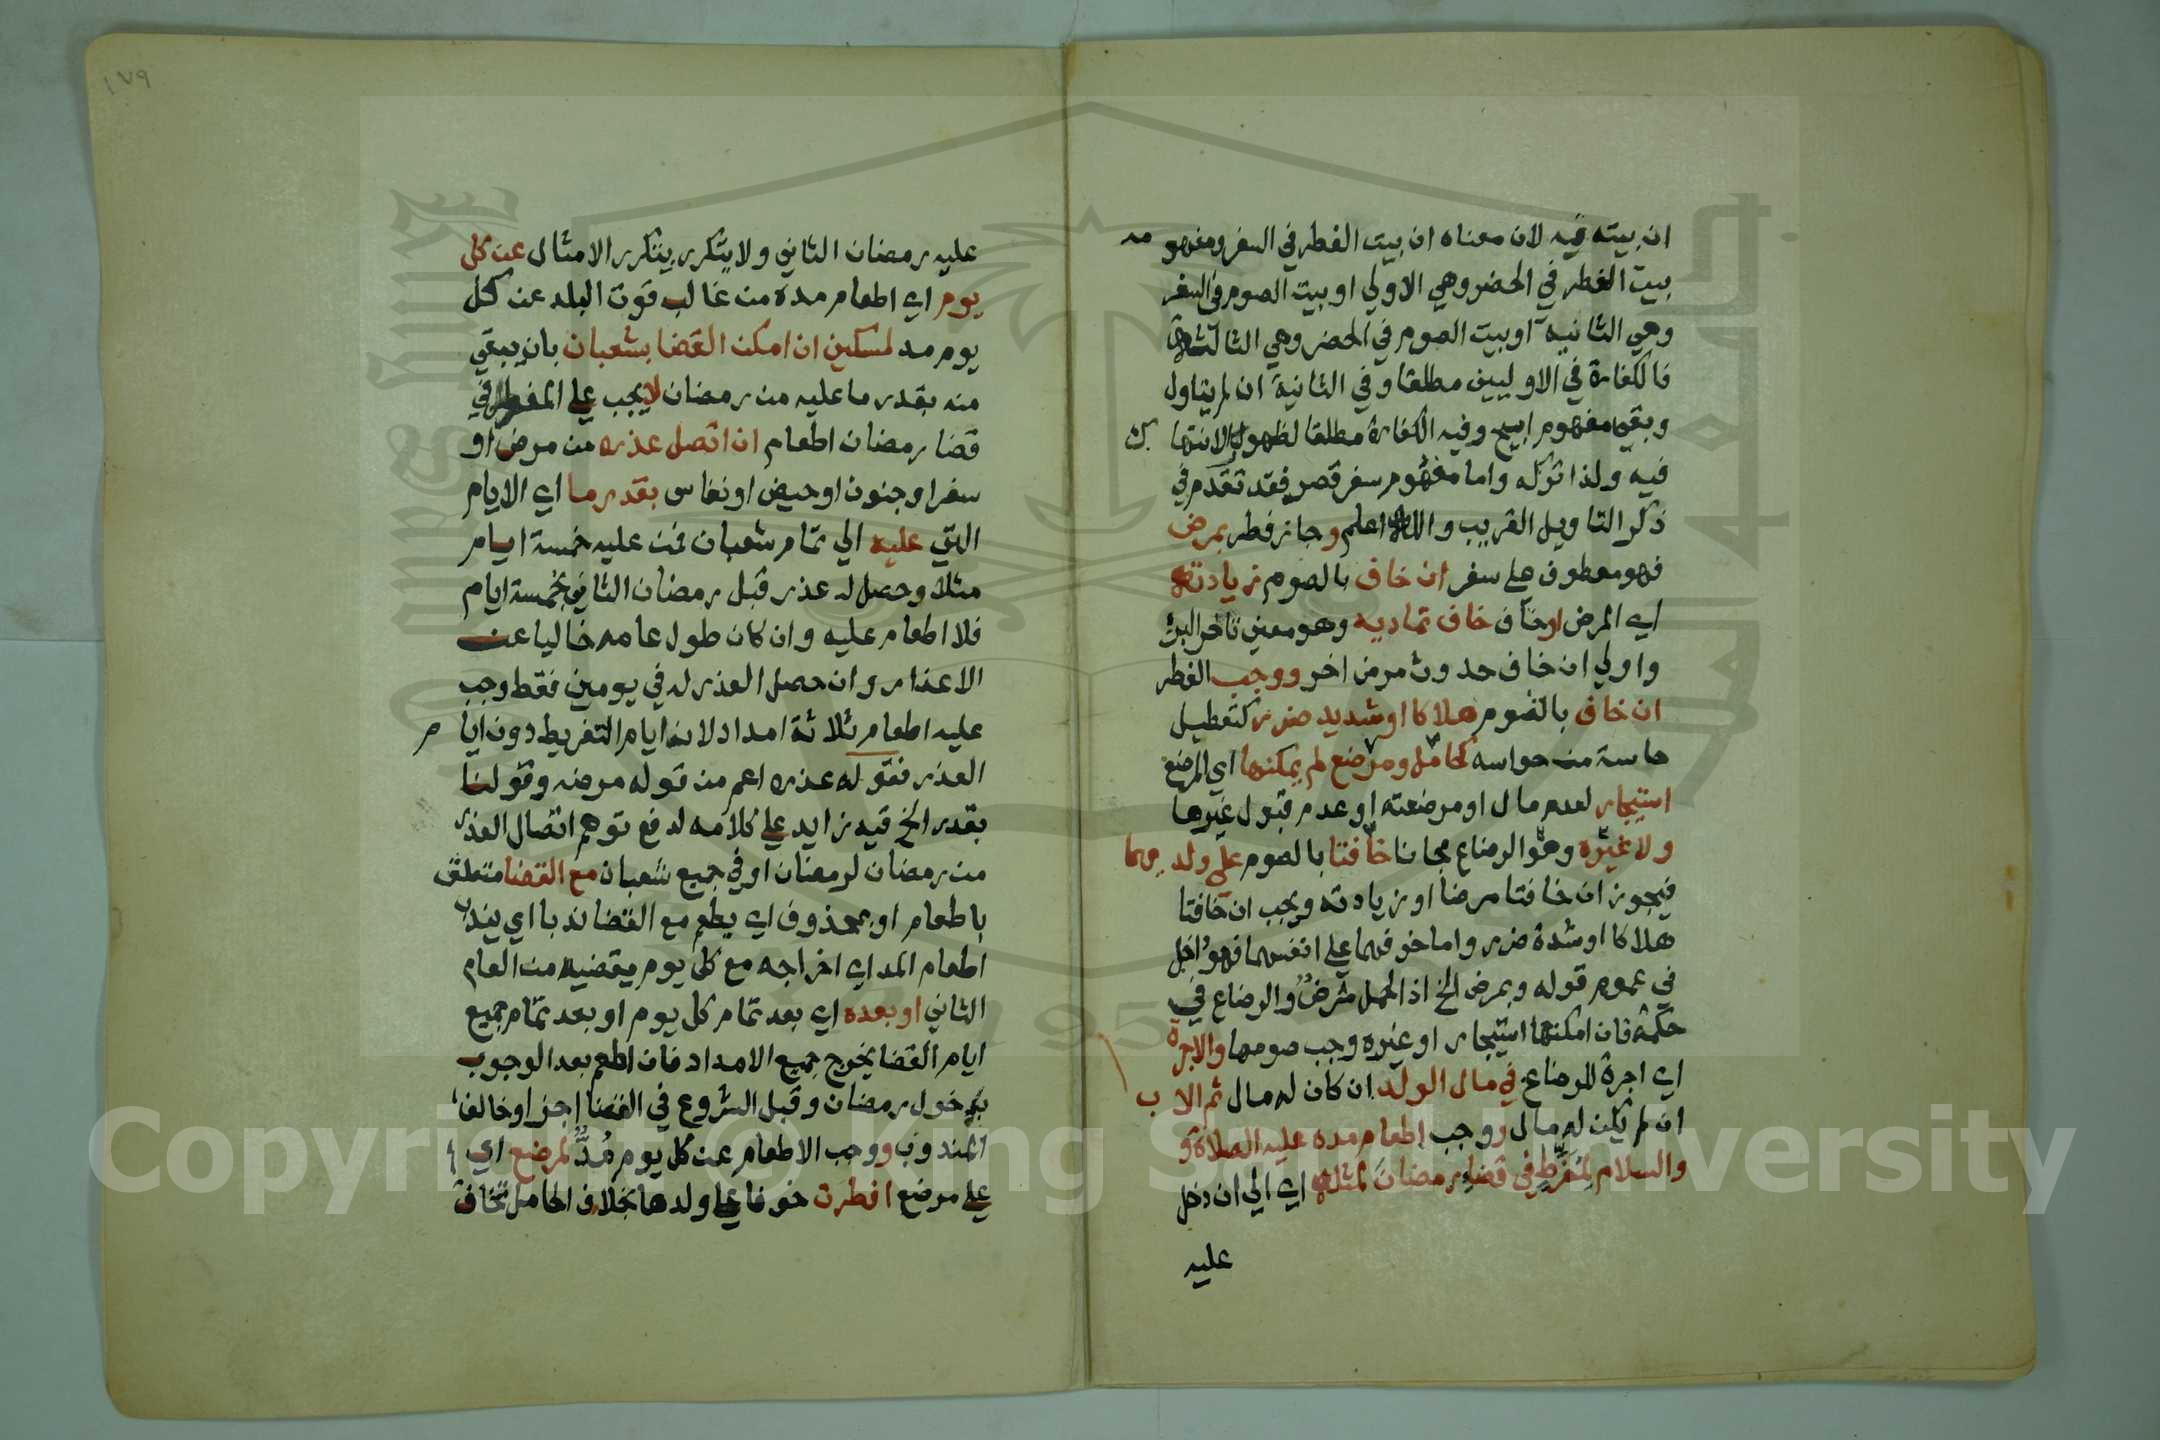 ان بيته فيه لان معناه ان بيت الفطر في السفر ومفهو مه
بيت الفطر في الحضر وهي الاولي او بيت الصوم في السفر
وهي الثانية او بيت الصوم في الحضر وهي الثالثة
فالكفارة في الاوليين مطلقا وفي الثانية ان لم يتاول
وبقي مفهوم ابيح وفيه الكفارة مطلقا لظهور الانتها ك
فيه ولذا تركه واما مفهوم سفر قصر فقد تقدم في
ذكر التاويل القريب والله اعلم وجاز فطر بمرض
فهو معطوف علي سفر ان خاف بالصوم زيادته
اي المرض او خاف خاف تماديه وهو معني تاخر البرء
واولي ان خاف حدوث مرض اخر ووجب الفطر
ان خاف بالصوم هلاكا او شديد ضرر كتعطيل
حاسة من حواسه كحامل ومرضع لم يمكنها اي المرضع
استيجار لعدم مال او مرضعته او عدم قبول غيرها
ولا غيره وهو الرضاع مجانا خافتا بالصوم علي ولديهما
فيجوز ان خافتا مرضا او زيادته ويجب ان خافتا
هلاكا او شدة ضرر واما خوفهما علي انفسهما فهو داخل
في عموم قوله وبمرض الخ اذ الحمل مرض والرضاع في
حكمه فان امكنها استيجار او غيره وجب صومها والاجرة
اي اجرة الرضاع في مال الولد ان كان له مال ثم الا ب
ان لم يكن له مال ووجب اطعام مده عليه الصلاة و
والسلام لمفرط في قضاء رمضان لمثله اي الي ان دخل
عليه
١٧٩
عليه رمضان الثاني ولا يتكرر بتكرر الامثال عن كل
يوم اي اطعام مده من غالب قوت البلد عن كل
يوم مد لمسكين ان امكن القضا بشعبان بان يبقي
منه بقدر ما عليه من رمضان لا يجب علي المفطر في
قضا رمضان اطعام ان اتصل عذره من مرض او
سفر او جنون او حيض او نفاس بقدر ما اي الايام
التي عليه الي تمام شعبان فمن عليه خمسة ايام
مثلا وحصل له عذر قبل رمضان الثاني بخمسة ايام
فلا اطعام عليه وان كان طول عامه خاليا عن
الاعذار وان حصل العذر له في يومين فقط وجب
عليه اطعام ثلاثة امداد لانها ايام التفريط دون ايا م
العذر فقوله عذره اعم من قوله مرضه وقولنا
بقدر الخ قيد زايد علي كلامه لدفع توهم اتصال العذر
من رمضان لرمضان او في جميع شعبان مع القضا متعلق
باطعام او بمحذوف اي يطعم مع القضا ندبا اي يندب
اطعام المد اي اخراجه مع كل يوم يقضيه من العام
الثاني او بعده اي بعد تمام كل يوم او بعد تمام جميع
ايام القضا يخرج جميع الامداد فان اطعم بعد الوجوب
بدخول رمضان وقبل الشروع في القضا اجزا وخالف
المندوب ووجب الاطعام عن كل يوم مُدٌّ لمرضع اي
علي مرضع افطرت خوفا علي ولدها بخلاف الحامل تخاف
Copyright © King Saud University